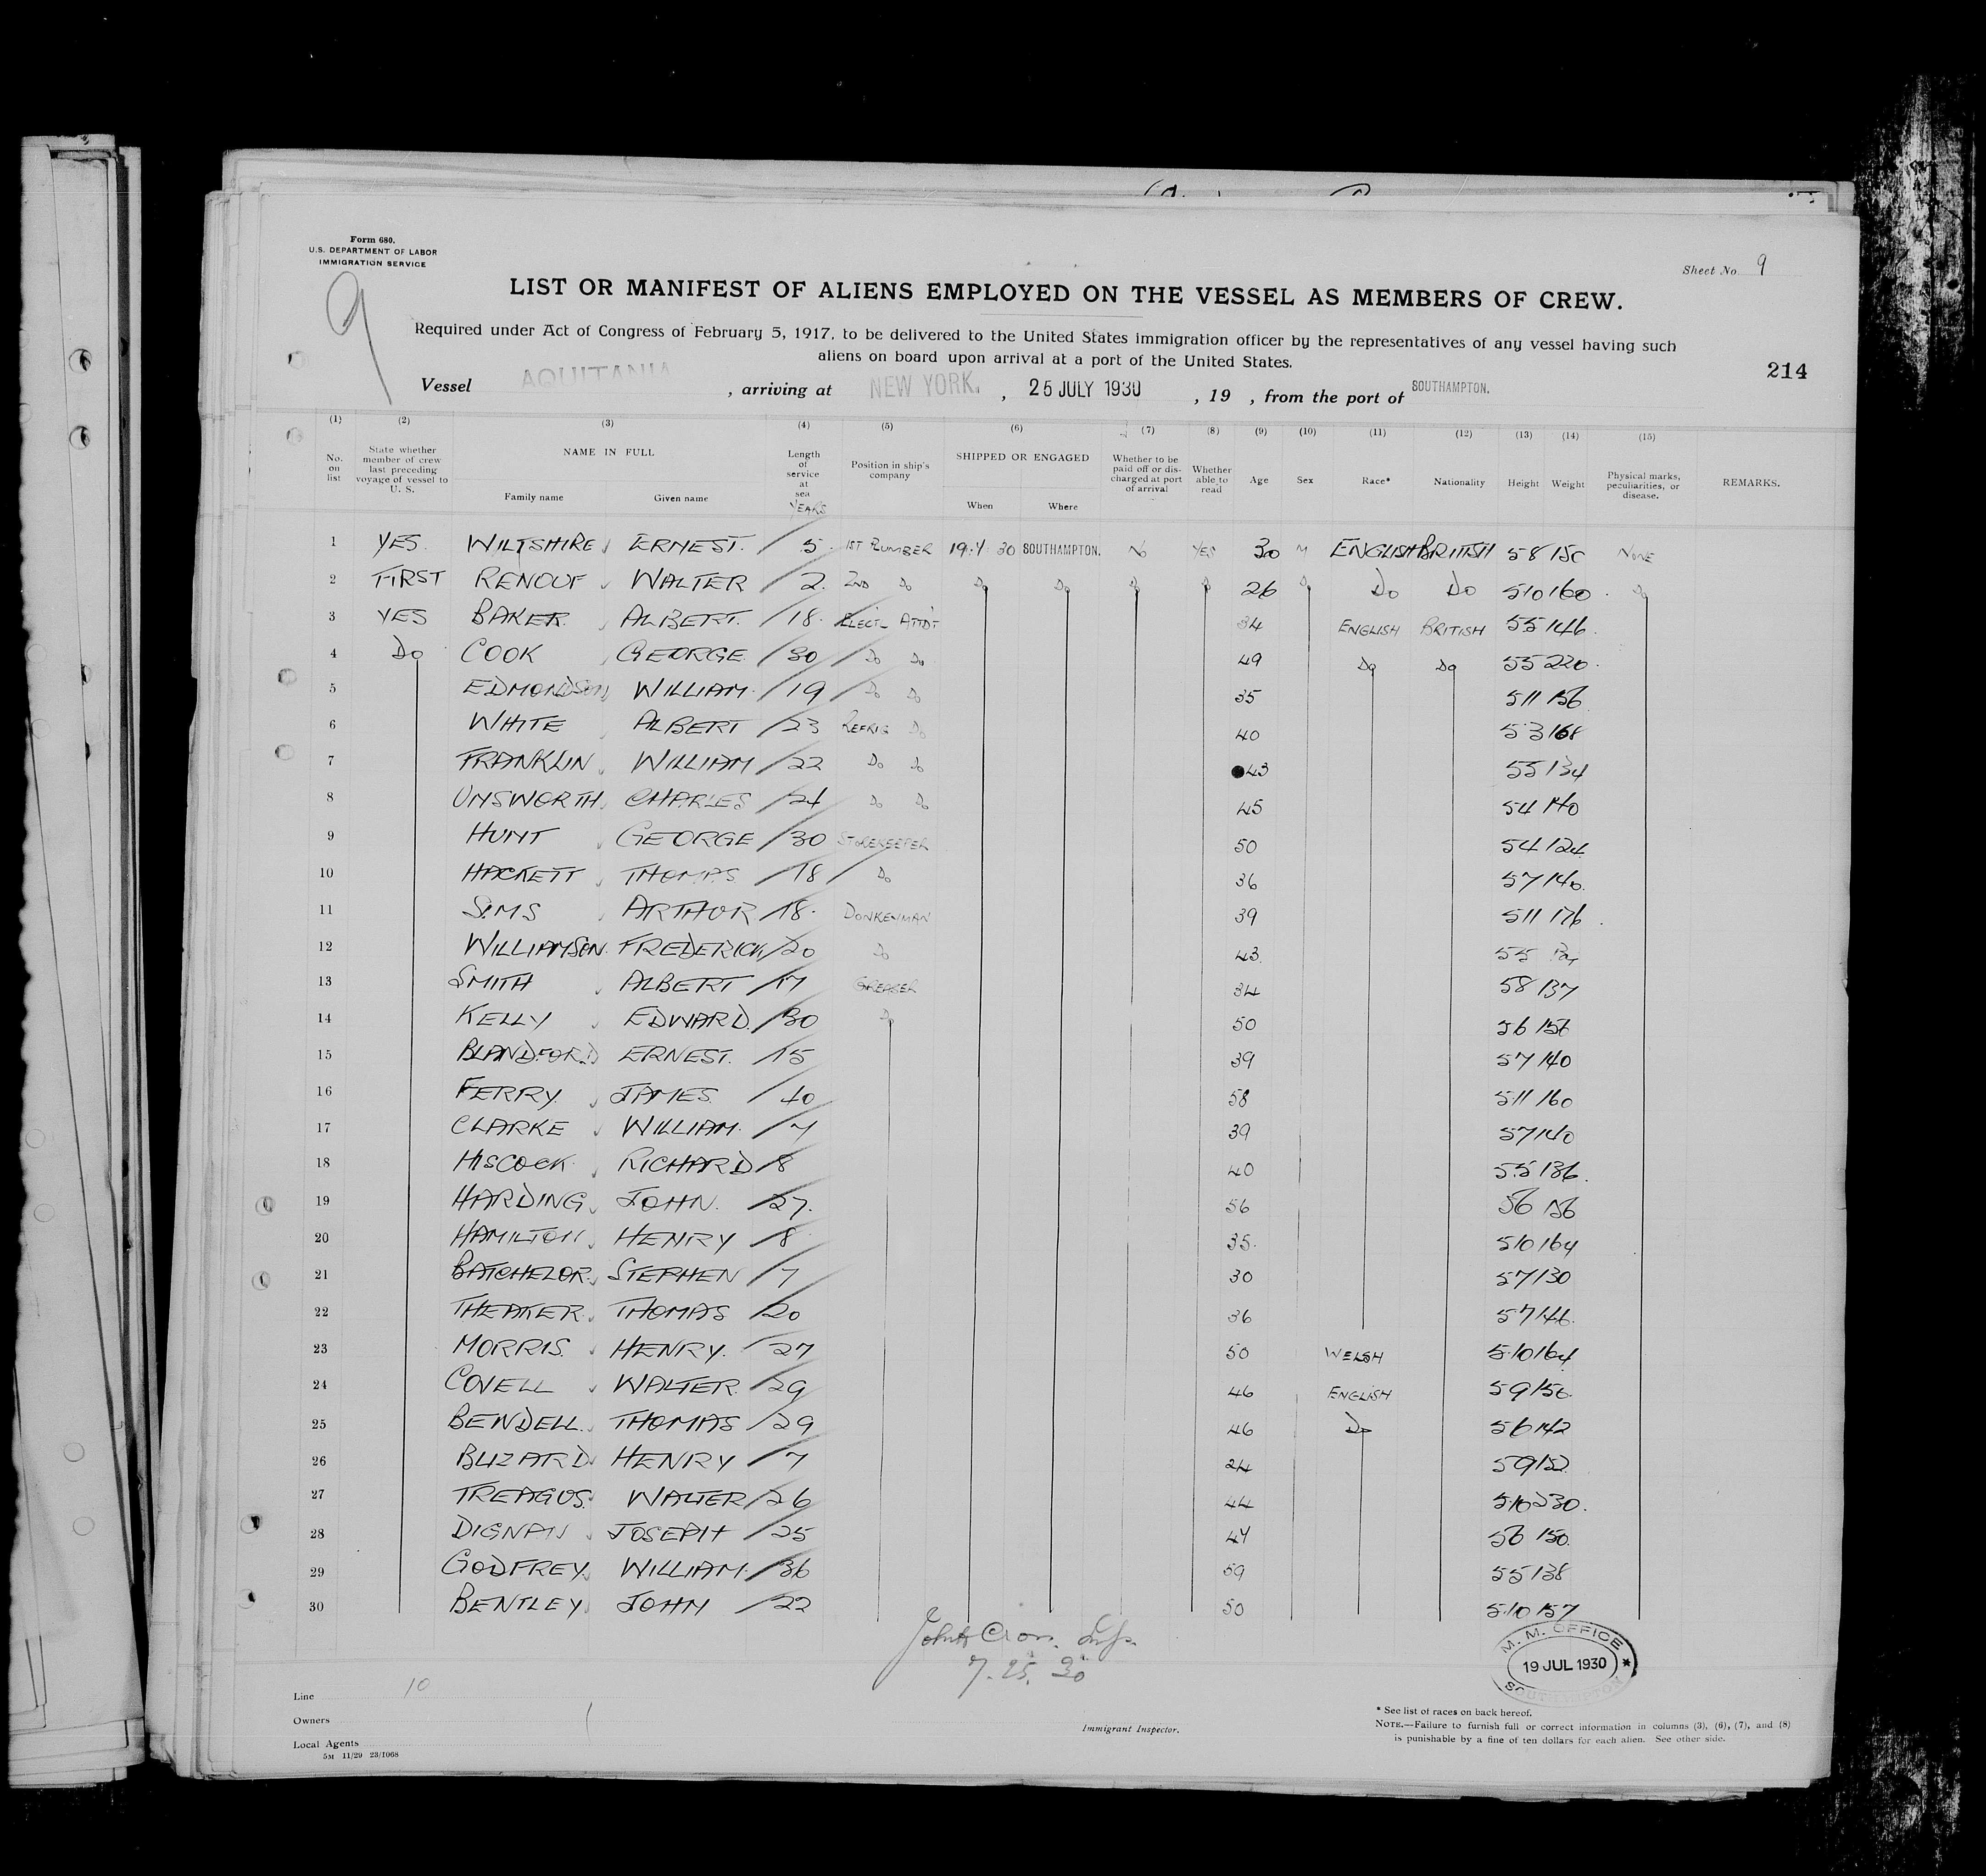 Form 680.
U.S. DEPARTMENT OF LABOR
IMMIGRATION SERVICE
9
Sheet No. 9
LIST OR MANIFEST OF ALIENS EMPLOYED ON THE VESSEL AS MEMBERS OF CREW.
Required under Act of Congress of February 5, 1917, to be delivered to the United States immigration officer by the representatives of any vessel having such
aliens on board upon arrival at a port of the United States.
214
Vessel AQUITANIA, arriving at NEW YORK., 25 JULY 1930, 19 , from the port of SOUTHAMPTON.
(1) (2) (3) (4) (5) (6) (7) (8) (9) (10) (11) (12) (13) (14) (15)
No. on list State whether member of crew last preceding voyage of vessel to U. S. NAME IN FULL Family name Given name Length of service at sea YEARS Position in ship's company SHIPPED OR ENGAGED When Where Whether to be paid off or discharged at port of arrival Whether able to read Age Sex Race* Nationality Height Weight Physical marks, peculiarities, or disease. REMARKS.
1 YES. WILTSHIRE ERNEST. 5 1ST PLUMBER 19.7 30 SOUTHAMPTON. No YES 30 M ENGLISH BRITISH 5 8 150 NONE
2 FIRST RENOUF WALTER 2. 2ND Do Do Do Do Do 26 Do Do Do 5 10 160 Do
3 YES BAKER ALBERT. 18. ELECT. ATTDT 34 ENGLISH BRITISH 5 5 146
4 Do COOK GEORGE 30 Do Do 49 Do Do 5 5 220
5 EDMONDSON WILLIAM 19 Do Do 35 5 11 156
6 WHITE ALBERT 23 REFRIG Do 40 5 3 168
7 FRANKLIN WILLIAM 22 Do Do 43 5 5 134
8 UNSWORTH CHARLES 24 Do Do 45 5 4 140
9 HUNT GEORGE 30 STOREKEEPER 50 5 4 124
10 HACKETT THOMAS 18 Do 36 5 7 140
11 SIMS ARTHUR 18. DONKEYMAN 39 5 11 176
12 WILLIAMSON FREDERICK 20 Do 43 5 5
13 SMITH ALBERT 17 GREASER 34 5 8 137
14 KELLY EDWARD. 30 Do 50 5 6 156
15 BLANDFORD ERNEST. 15 39 5 7 140
16 FERRY JAMES 40 58 5 11 160
17 CLARKE WILLIAM 7 39 5 7 140
18 HISCOCK RICHARD 8 40 5 5 136
19 HARDING JOHN. 27. 56 5 6 156
20 HAMILTON HENRY 8 35 5 10 164
21 BATCHELOR STEPHEN 7 30 5 7 130
22 THEAKER THOMAS 20 36 5 7 146
23 MORRIS HENRY. 27 50 WELSH 5 10 164
24 COVELL WALTER 29 46 ENGLISH 5 9 156
25 BENDELL THOMAS 29 46 Do 5 6 142
26 BLIZARD HENRY 7 24 5 9 152
27 TREAGUS WALTER 26 44 5 10 230.
28 DIGNAN JOSEPH 25 47 5 6 150
29 GODFREY WILLIAM 36 59 5 5 138
30 BENTLEY JOHN 22 50 5 10 157
7. 25. 30
M. M. OFFICE
19 JUL 1930
SOUTHAMPTON
Line 10
Owners
Local Agents
5M 11/29 23/1068
Immigrant Inspector.
* See list of races on back hereof.
NOTE.—Failure to furnish full or correct information in columns (3), (6), (7), and (8)
is punishable by a fine of ten dollars for each alien. See other side.